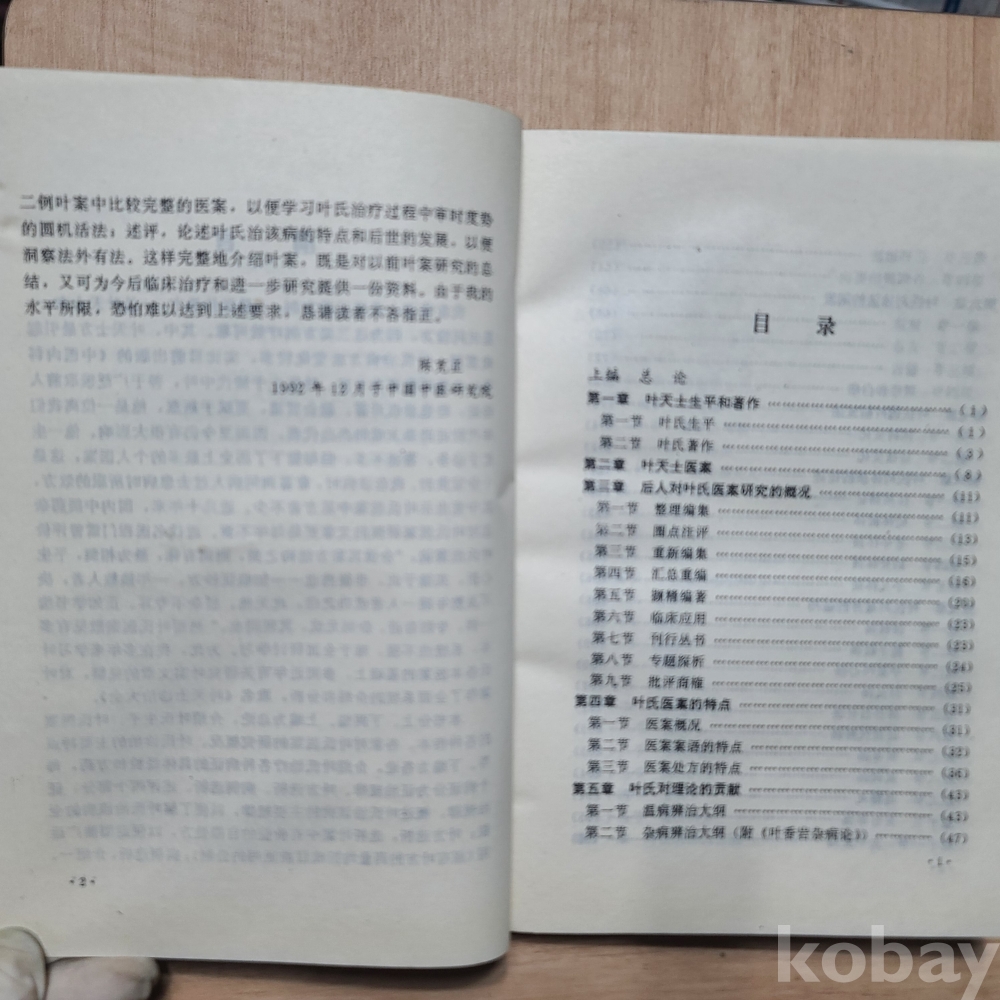 二例叶案中比较完整的医案,以便学习叶氏治疗过程中审时度势
的圆机活法;述评,论述叶氏治该病的特点和后世的发展,以便
洞察法外有法,这样完整地介绍叶案,既是对以前叶案研究的总
结,又可为今后临床治疗和进一步研究提供一份资料。由于我的
水平所限,恐怕难以达到上述要求,恳请读者不吝指正。
陈克正
1992年12月于中国中医研究院
·2·
目 录
上编 总 论
第一章 叶天士生平和著作 (1)
第一节 叶氏生平 (1)
第二节 叶氏著作 (3)
第二章 叶天士医案 (8)
第三章 后人对叶氏医案研究的概况 (11)
第一节 整理编集 (11)
第二节 圈点注评 (13)
第三节 重新编集 (15)
第四节 汇总重编 (16)
第五节 撷精编著 (20)
第六节 临床应用 (23)
第七节 刊行丛书 (23)
第八节 专题探析 (24)
第九节 批评商榷 (25)
第四章 叶氏医案的特点 (31)
第一节 医案概况 (31)
第二节 医案案语的特点 (32)
第三节 医案处方的特点 (36)
第五章 叶氏对理论的贡献 (43)
第一节 温病辨治大纲 (43)
第二节 杂病辨治大纲(附《叶香岩杂病论》) (47)
·1·
kobay